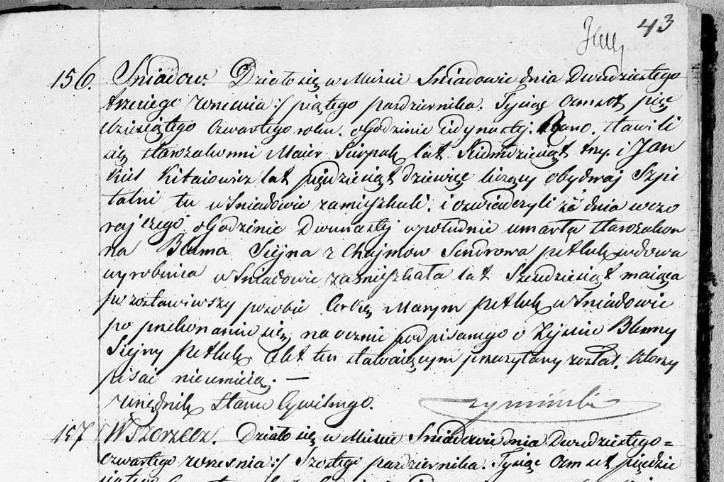 43
156. Śniadow. Działo się w Mieście Śniadowie dnia Dwudziestego
trzeciego Wrzesnia :/ piątego pazdziernika. Tysiąc Osmset pięć
dziesiątego Czwartego roku. o Godzinie iedynastej Rano. Stawili
się starozakonni Maier lat Siedmdziesiąt trzy. i Jan
kiel Kitaiowicz lat pięćdziesiąt dziewięć liczący obydwaj Szpi
talni tu w Śniadowie zamieszkali. i oswiadczyli że dnia wczo
rajszego o Godzinie Dwunastej w południe umarła starozakon
na Bluma Siejna z Chajmow Sendrowa Petluk wdowa
wyrobnica w Śniadowie zamieszkała lat Szescdziesiąt maiąca
pozostawiwszy po sobie Corkę Marym Petluk w Śniadowie
po przekonaniu się naocznie podpisanego o Zejsciu Blumy
Siejny Petluk Akt ten stawaiącym przeczytany został. ktorzy
pisać nie umieią. —
Urzędnik Stanu Cywilnego.
157 W Szczecz. Działo się w Mieście Śniadowie dnia Dwudziestego=
czwartego Wrzesnia :/ Szostego pazdziernika. Tysiąc Osmset pięćdzie